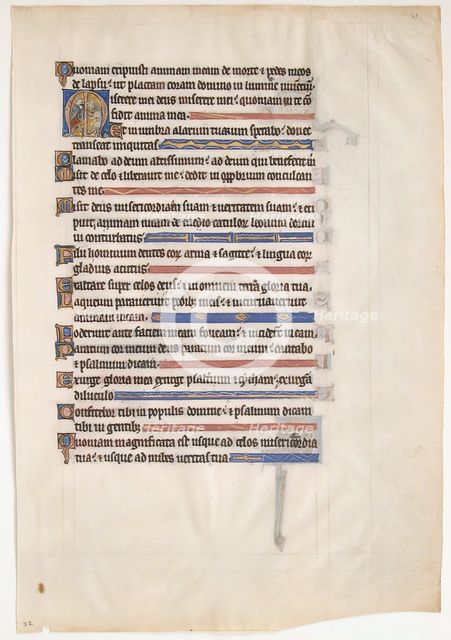 41
Quoniam eripuisti animam meam de morte & pedes meos
de lapsu: ut placeam coram domino in lumine
Miserere mei deus miserere mei: quoniam in te con
fidit anima mea.
Et in umbra alarum tuarum sperabo: donec
transeat iniquitas.
Clamabo ad deum altissimum: ad deum qui benefecit m
Misit de celo & liberauit me: dedit in opprobrium conculcan
tes me.
Misit deus misericordiam suam & ueritatem suam: & eri
puit animam meam de medio catulorum leonum dormiui
conturbatus
Filii hominum dentes eor arma & sagitte: & lingua eor
gladius acutus.
Exaltare super celos deus: & in omnem terra gloria tua.
Laqueum parauerunt pedib; meis: & incuruauerunt
animam meam.
Foderunt ante faciem meam foueam: & inciderunt in eam
Paratum cor meum deus paratum cor meum: cantabo
& psalmum dicam
Exurge gloria mea exurge psalterium & cythara: exurga
diluculo
Confitebor tibi in populis domine: & psalmum dicam
tibi in gentib;
Quoniam magnificata est usque ad celos misericordia
tua: & usque ad nubes ueritas tua
32
Heritage
Heritage
Heritage